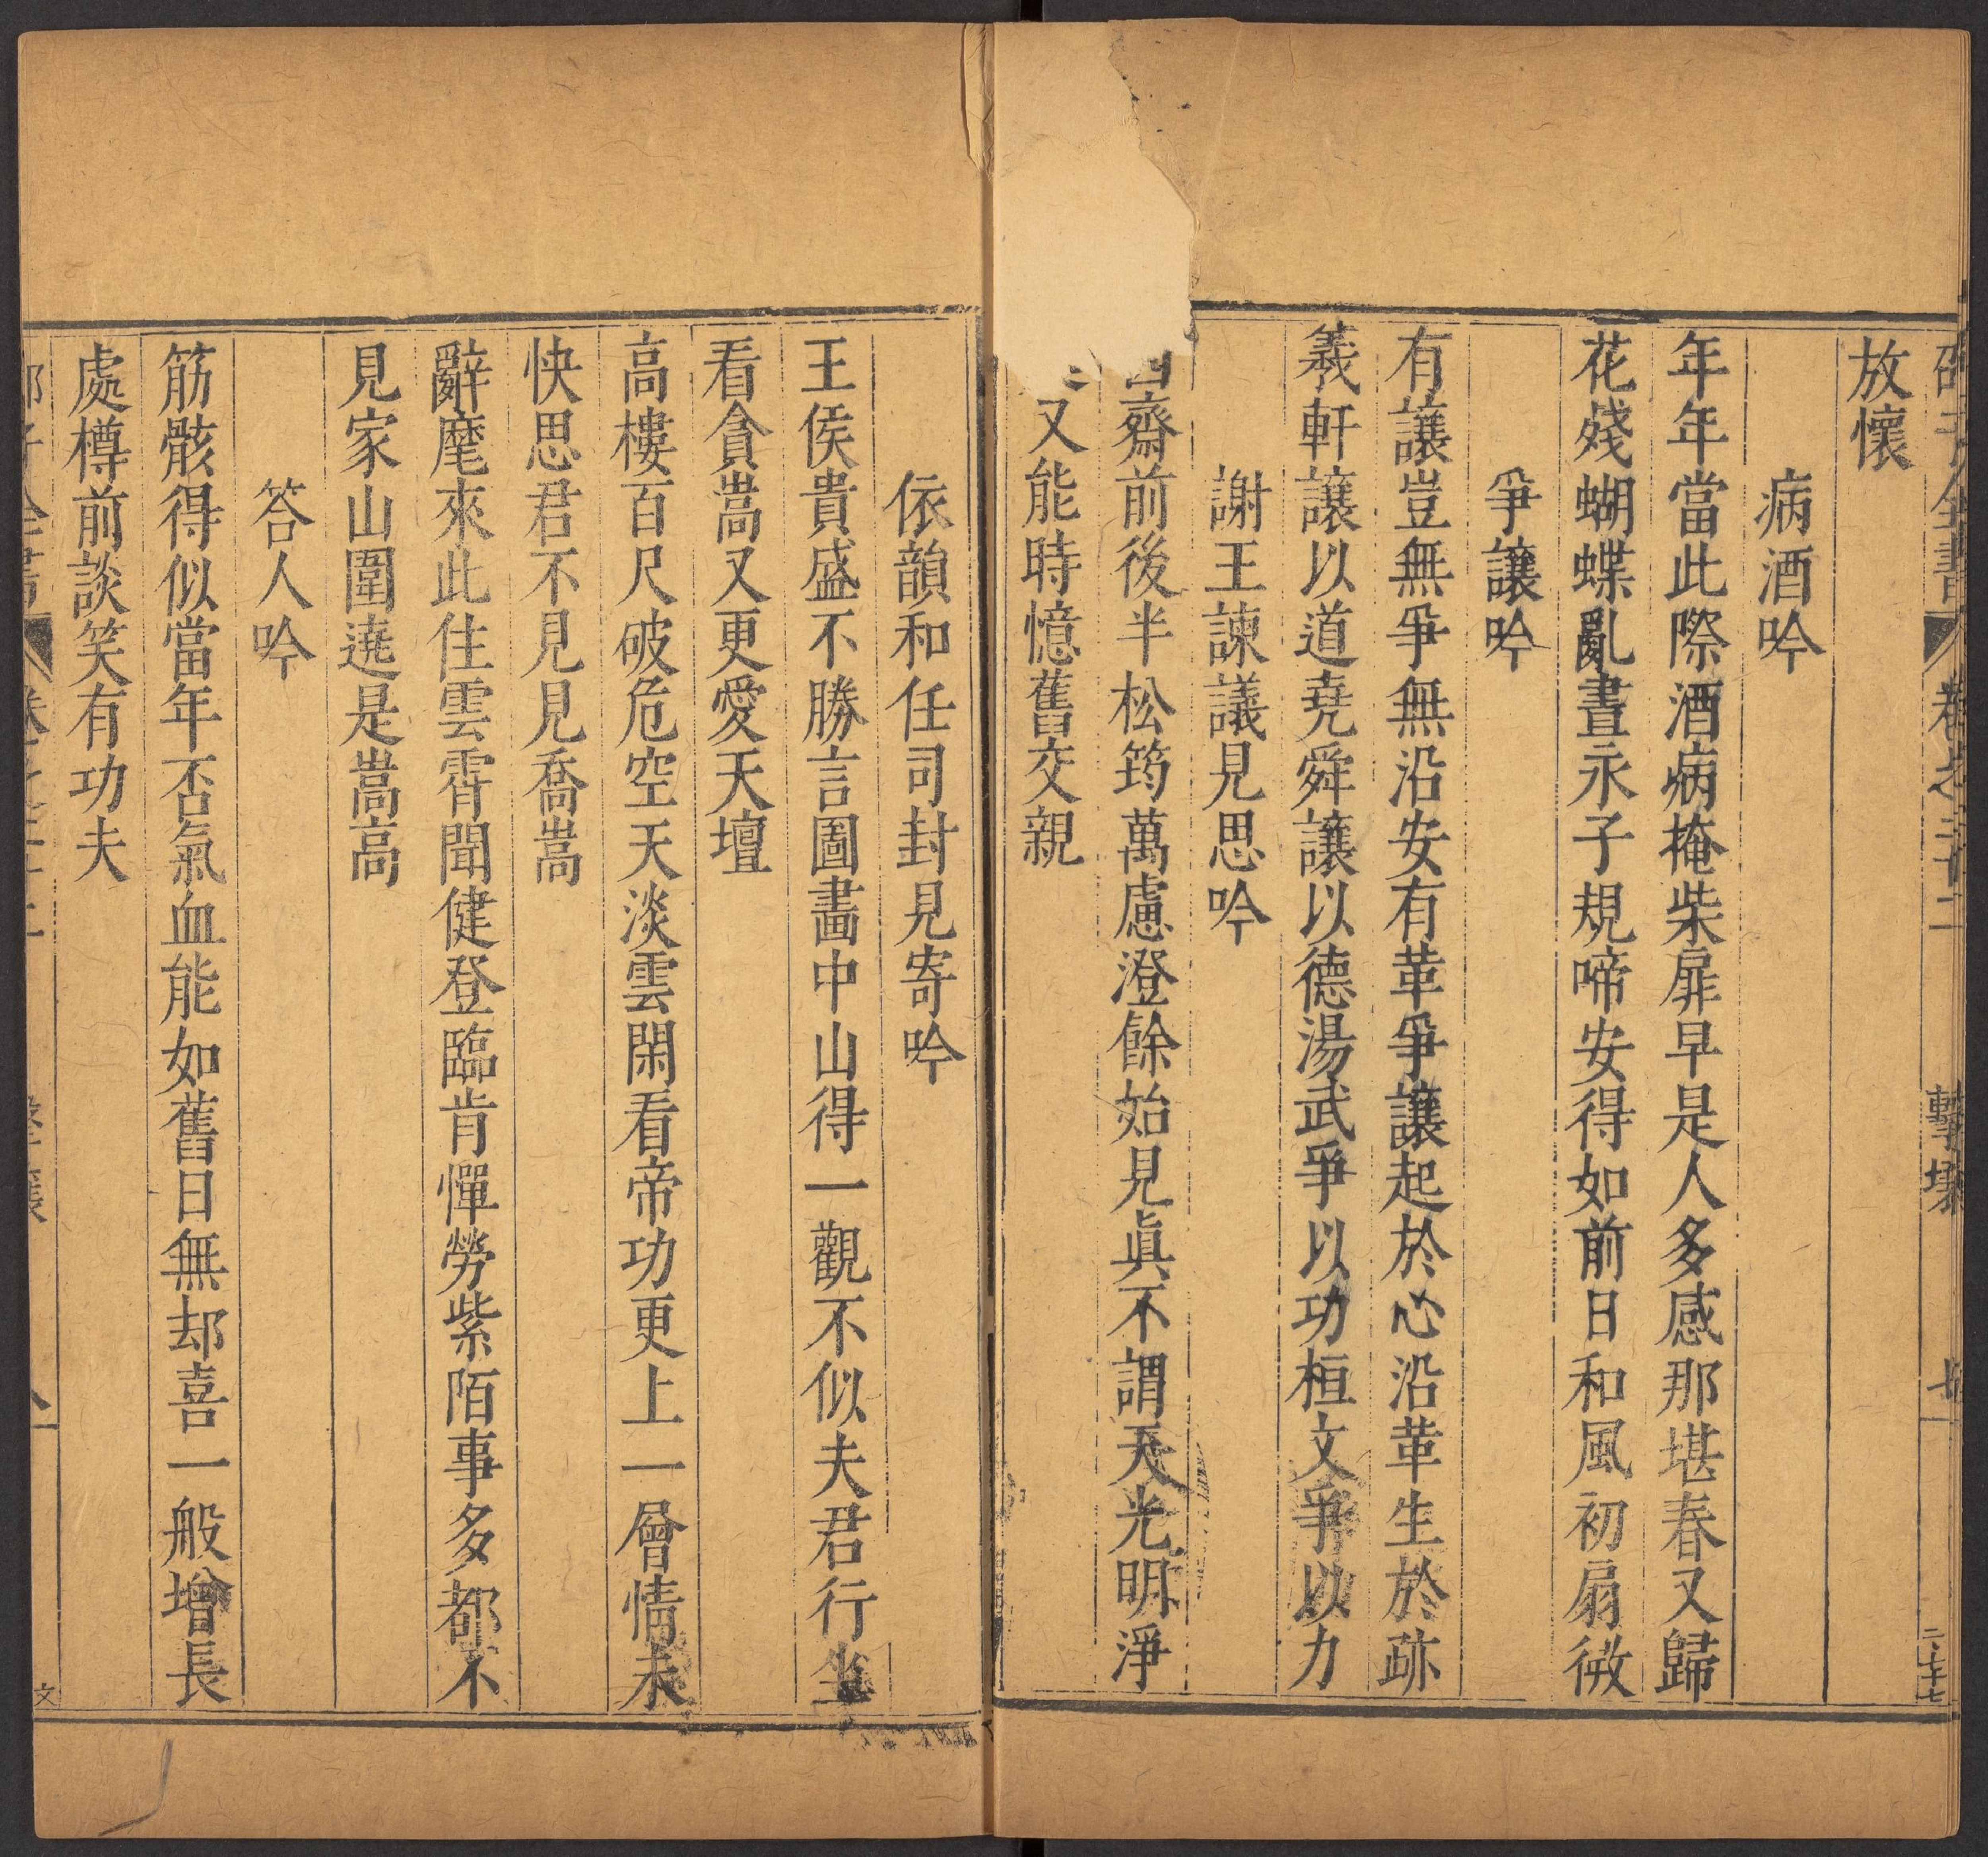 放懷
病酒吟
年年當此際酒病掩柴扉早是人多感那堪春又歸
花殘蝴蝶亂晝永子規啼安得如前日和風初扇微
爭讓吟
有讓豈無爭無沿安有革爭讓起於心沿革生於跡
羲軒讓以道堯舜讓以德湯武爭以功桓文爭以力
謝王諫議見思吟
西齋前後半松筠萬慮澄餘始見眞不謂天光明淨
又能時憶舊交親
依韻和任司封見寄吟
王侯貴盛不勝言圖畵中山得一觀不似夫君行坐
看貪嵩又更愛天壇
高樓百尺破危空天淡雲閑看帝功更上一層情未
快思君不見見喬嵩
辭麾來此住雲霄聞健登臨肯憚勞紫陌事多都不
見家山圍遶是嵩高
答人吟
筋骸得似當年否氣血能如舊日無却喜一般增長
處樽前談笑有功夫